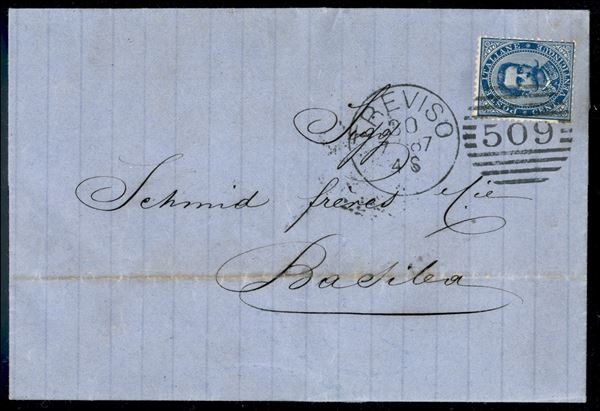 POSTE ITALIANE
TREVISO
20
87
4 S
509
Sigg
Schmid frères & Cie
Basilea